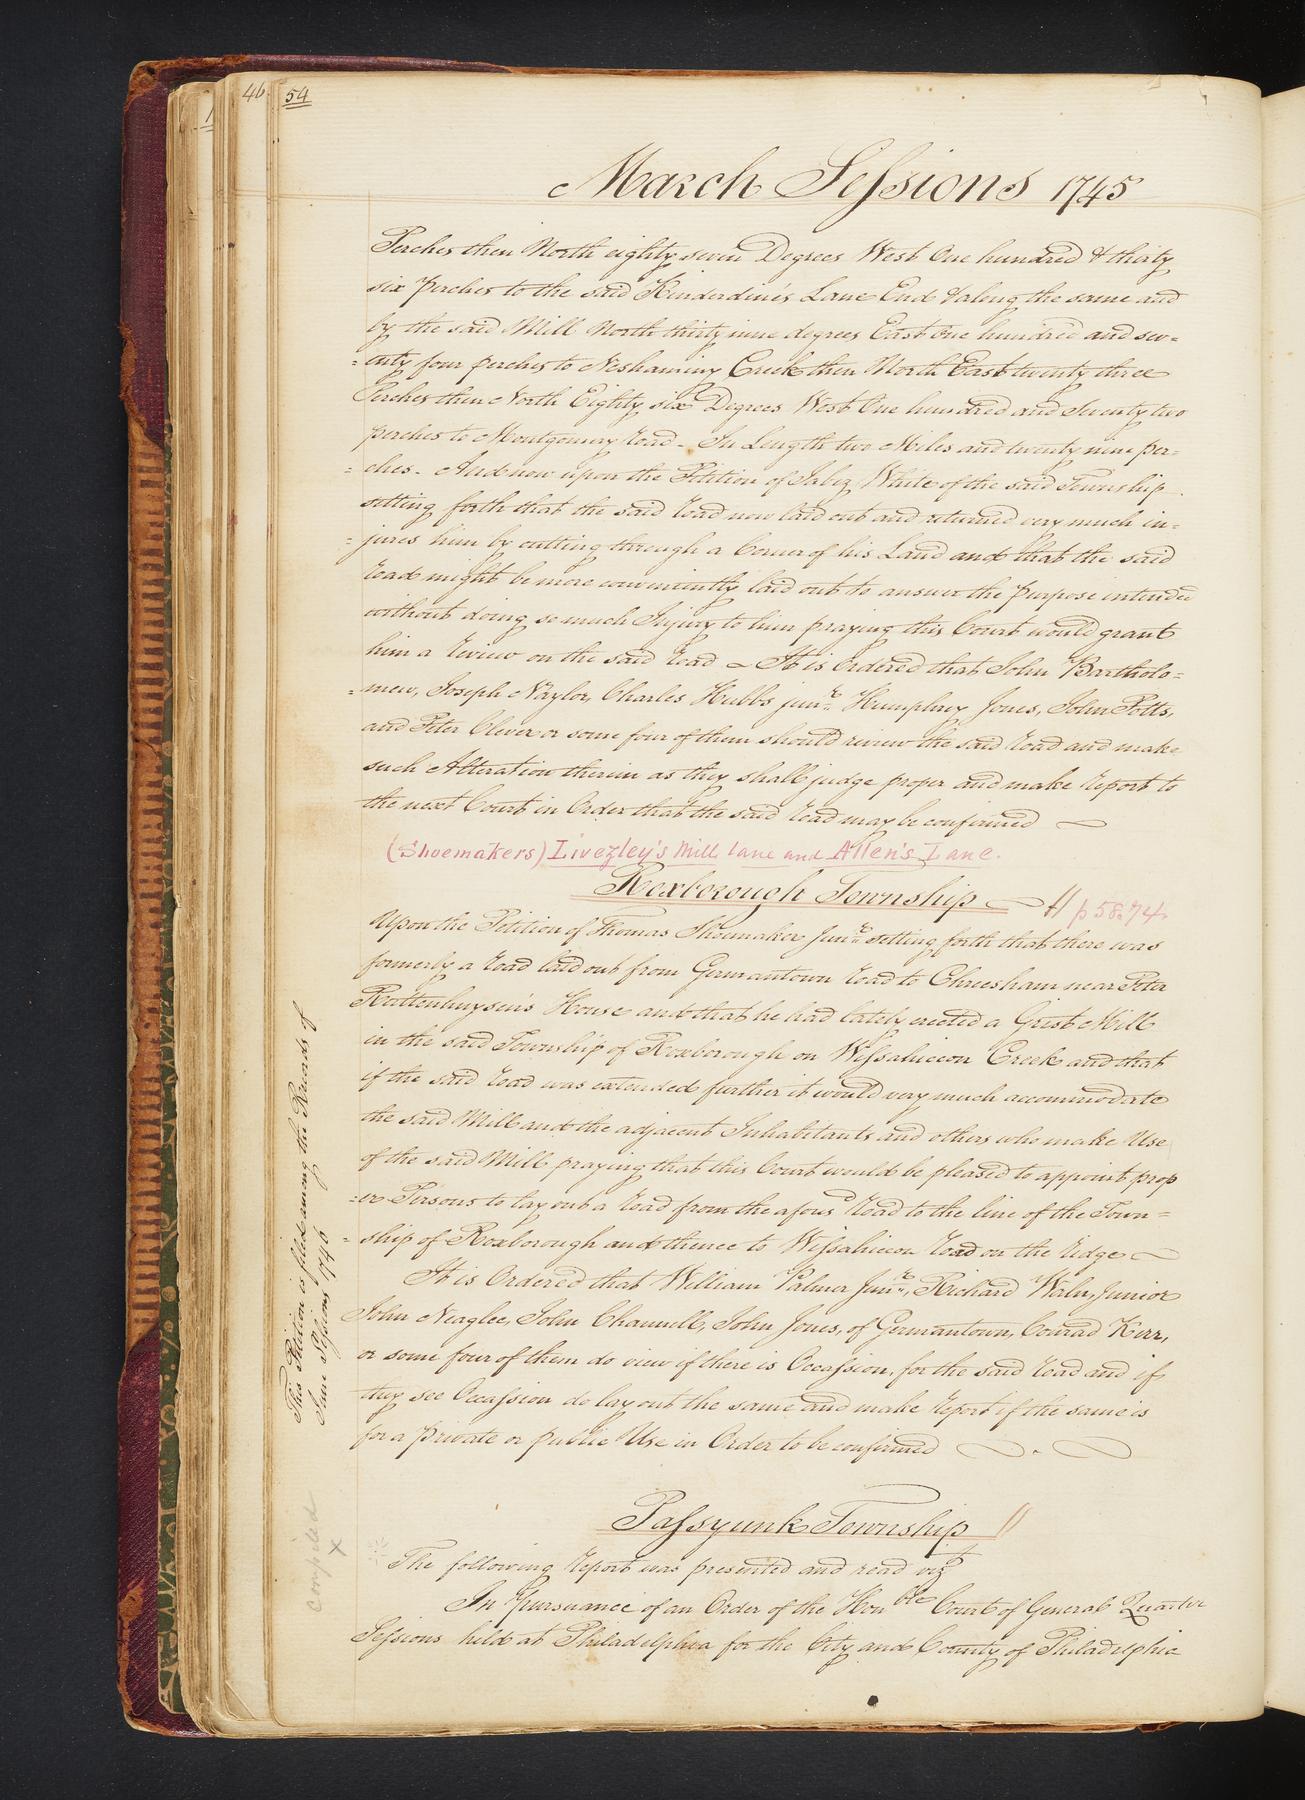 46
54
March Sessions 1745
Perches then North eighty seven Degrees West One hundred & thirty
six perches to the said Kinderdine's Lane End & along the same and
by the said Mill North thirty nine degrees East One hundred and sev=
=enty four perches to Neshaminy Creek then North East twenty three
Perches then North Eighty six Degrees West One hundred and Seventy two
perches to Montgomery road - In Length two Miles and twenty nine per=
=ches - And now upon the Petition of Jabez White of the said Township
setting forth that the said road now laid out and returned very much in=
=jures him by cutting through a Corner of his Land and that the said
road might be more conveniently laid out to answer the Purpose intended
without doing so much Injury to him praying this Court would grant
him a review on the said road - It is Ordered that John Bartholo=
=mew, Joseph Naylor, Charles Hubbs junr. Humphrey Jones, John Potts,
and Peter Clever or some four of them should review the said road and make
such Alteration therein as they shall judge proper and make report to
the next Court in Order that the said road may be confirmed
(Shoemakers) Livezley's Mill Lane and Allen's Lane.
Roxborough Township // p 58. 74.
Upon the Petition of Thomas Shoemaker Junr. setting forth that there was
formerly a road laid out from Germantown road to Chreesham near Peter
Rittenhuysen's House and that he had lately erected a Grist Mill
in the said Township of Roxborough on Wissahiccon Creek and that
if the said road was extended further it would very much accommodate
the said Mill and the adjacent Inhabitants and others who make Use
of the said Mill praying that this Court would be pleased to appoint prop
=er Persons to lay out a road from the afousd road to the line of the Town=
=ship of Roxborough and thence to Wissahiccon road on the ridge
It is Ordered that William Palmer Junr., Richard Waln, Junior
John Neaglee, John Channell, John Jones, of Germantown, Conrad Kerr,
or some four of them do view if there is Occassion, for the said road and if
they see Occassion do lay out the same and make report if the same is
for a private or public Use in Order to be confirmed
This Petition is filed among the Records of
June Sessions 1746
Passyunk Township //
compiled
x
The following report was presented and read vizt
In Pursuance of an Order of the Honble Court of General Quarter
Sessions held at Philadelphia for the City and County of Philadelphia